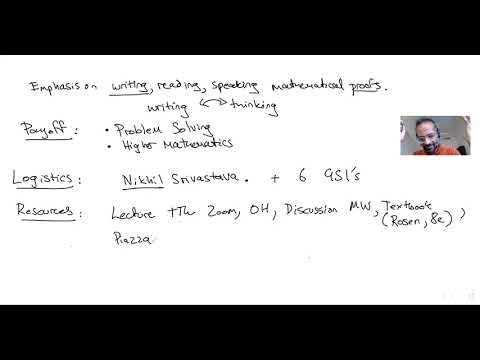 Emphasis on writing, reading, speaking mathematical proofs.
writing ↔ thinking
Payoff : • Problem Solving
• Higher Mathematics
Logistics : Nikhil Srivastava. + 6 GSI's
Resources : Lecture TTh Zoom, OH, Discussion MW, Textbook (Rosen, 8e),
Piazza